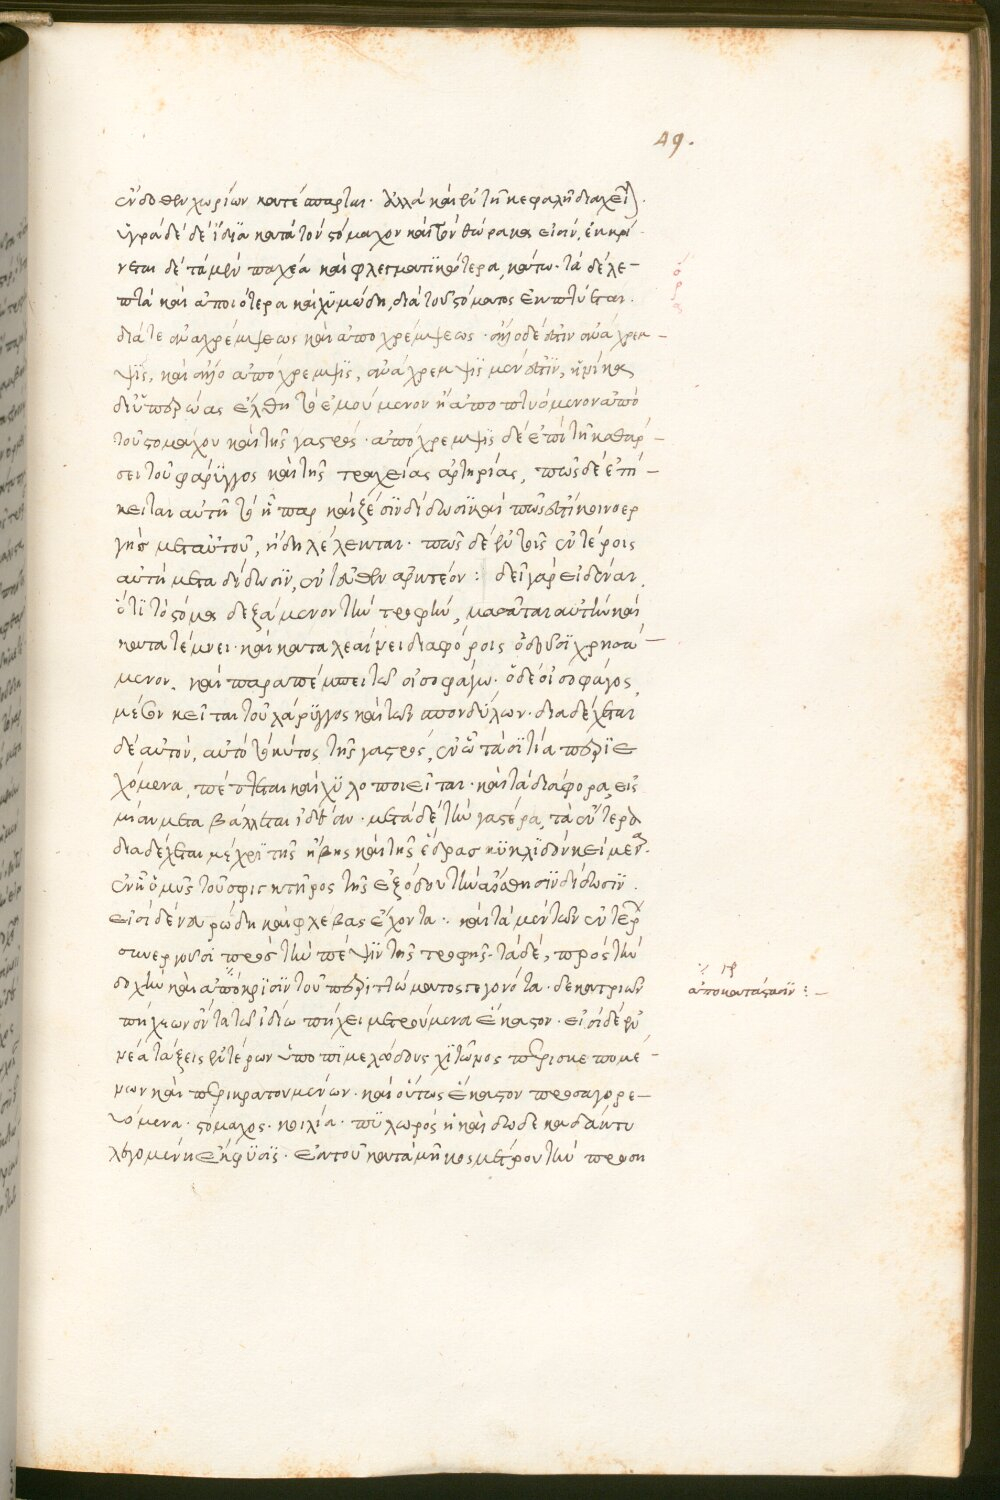 49.
ἔνδοθεν χωρίων κατέσπαρται· ἀλλὰ καὶ ἐν τῇ κεφαλῇ διαχεῖ).
ὑγρὰ δὲ δὲ ἴδια κατὰ τὸν στόμαχον καὶ τὸν θώρακα εἰσίν, ἐκκρί
νεται δὲ τὰ μὲν παχέα καὶ φλεγματϊκώτερα, κάτω· τὰ δὲ λε-
πτὰ καὶ ἀποιότερα καὶ χϋμώδη, διὰ τοῦ στόματος ἐκπτύεται.
διά τε ἀναχρέμψεως καὶ ἀποχρέμψεως· ἄλλο δέ ἐστιν ἀνάχρεμ-
ψϊς, καὶ ἄλλο ἀπόχρεμψϊς, ἀνάχρεμψϊς μὲν ἐστϊν, ἡνίκα
δι' ὑπερῴας ἔλθῃ τὸ ἐμούμενον ἢ ἀποπτυόμενον ἀπὸ
τοῦ στομάχου καὶ τῆς γαστρός· ἀπόχρεμψϊς δὲ ἐπὶ τῇ καθάρ-
σει τοῦ φάρϋγγος καὶ τῆς τραχείας ἀρτηρίας, πῶς δὲ ἐπί-
κειται αὐτῇ τὸ ἧπαρ καὶ ζέσϊν δίδωσϊ καὶ πῶς ἐστὶ κοινοερ
γὴς μετ αὐτοῦ, ἤδη λέλεκται· πῶς δὲ ἐν τοῖς ἐντέροις
αὐτὴ μεταδίδωσϊν, ἐντεῦθεν ἀρκτέον: δεῖ γὰρ εἰδέναι
ὅτϊ τὸ στόμα δεξάμενον τὴν τροφὴν, μασᾶται αὐτὴν καὶ
κατατέμνει· καὶ καταλεαίνει διαφόροις ὀδοῦσϊ χρησά-
μενον. καὶ παραπέμπει τῷ οἰσοφάγω· ὁ δὲ οἰσοφάγος,
μέσον κεῖται τοῦ λάρϋγγος καὶ τῶν σπονδύλων· διαδέχεται
δὲ αὐτὸν, αὐτὸ τὸ κύτος τῆς γαστρός, ἐν ᾧ τὰ σϊτία περϊε
χόμενα, πέττεται καὶ χϋλοποιεῖται· καὶ τὰ διάφορα, εἰς
μίαν μεταβάλλεται ἰδέαν· μετὰ δὲ τὴν γαστέρα, τὰ ἔντερα
διαδέχεται μέχρϊ τῆς ἥβης καὶ τῆς ἕδρας κϋκλϊδὸν κείμεν.
ἐν ᾗ ὁ μῦς τοῦ σφιγκτῆρος τῆς ἐξόδου τὴν αἴσθησϊν δίδωσϊν.
εἰσὶ δὲ νευρώδη καὶ φλέβας ἔχοντα· καὶ τὰ μὲν τῶν ἐντέρ
συνεργοῦσϊ πρὸς τὴν πέψϊν τῆς τροφῆς· τὰ δέ, πρὸς τὴν
δοχὴν καὶ ἀπόκρϊσϊν τοῦ περϊττώματος γεγονότα· δεκατριῶν
πήχεων ὄντα τῷ ἰδίω πήχει μετρούμενα ἕκαστον· εἰσὶ δὲ ἐν
νέα τάξεις ἐντέρων ὑπὸ πϊμελώδους χϊτῶνος περισκεπομέ-
νων καὶ περικρατουμένων· καὶ οὕτως ἕκαστον προσαγορε-
υόμενα· στόμαχος· κοιλία· πϋλωρός ἡ καὶ δωδεκαδάκτυ
λεγομένη ἔκφϋσϊς· ἐκ τοῦ κατὰ μῆκος μέτρου τὴν προση
ὅρα
γρ
ἀποκατάστασϊν:-